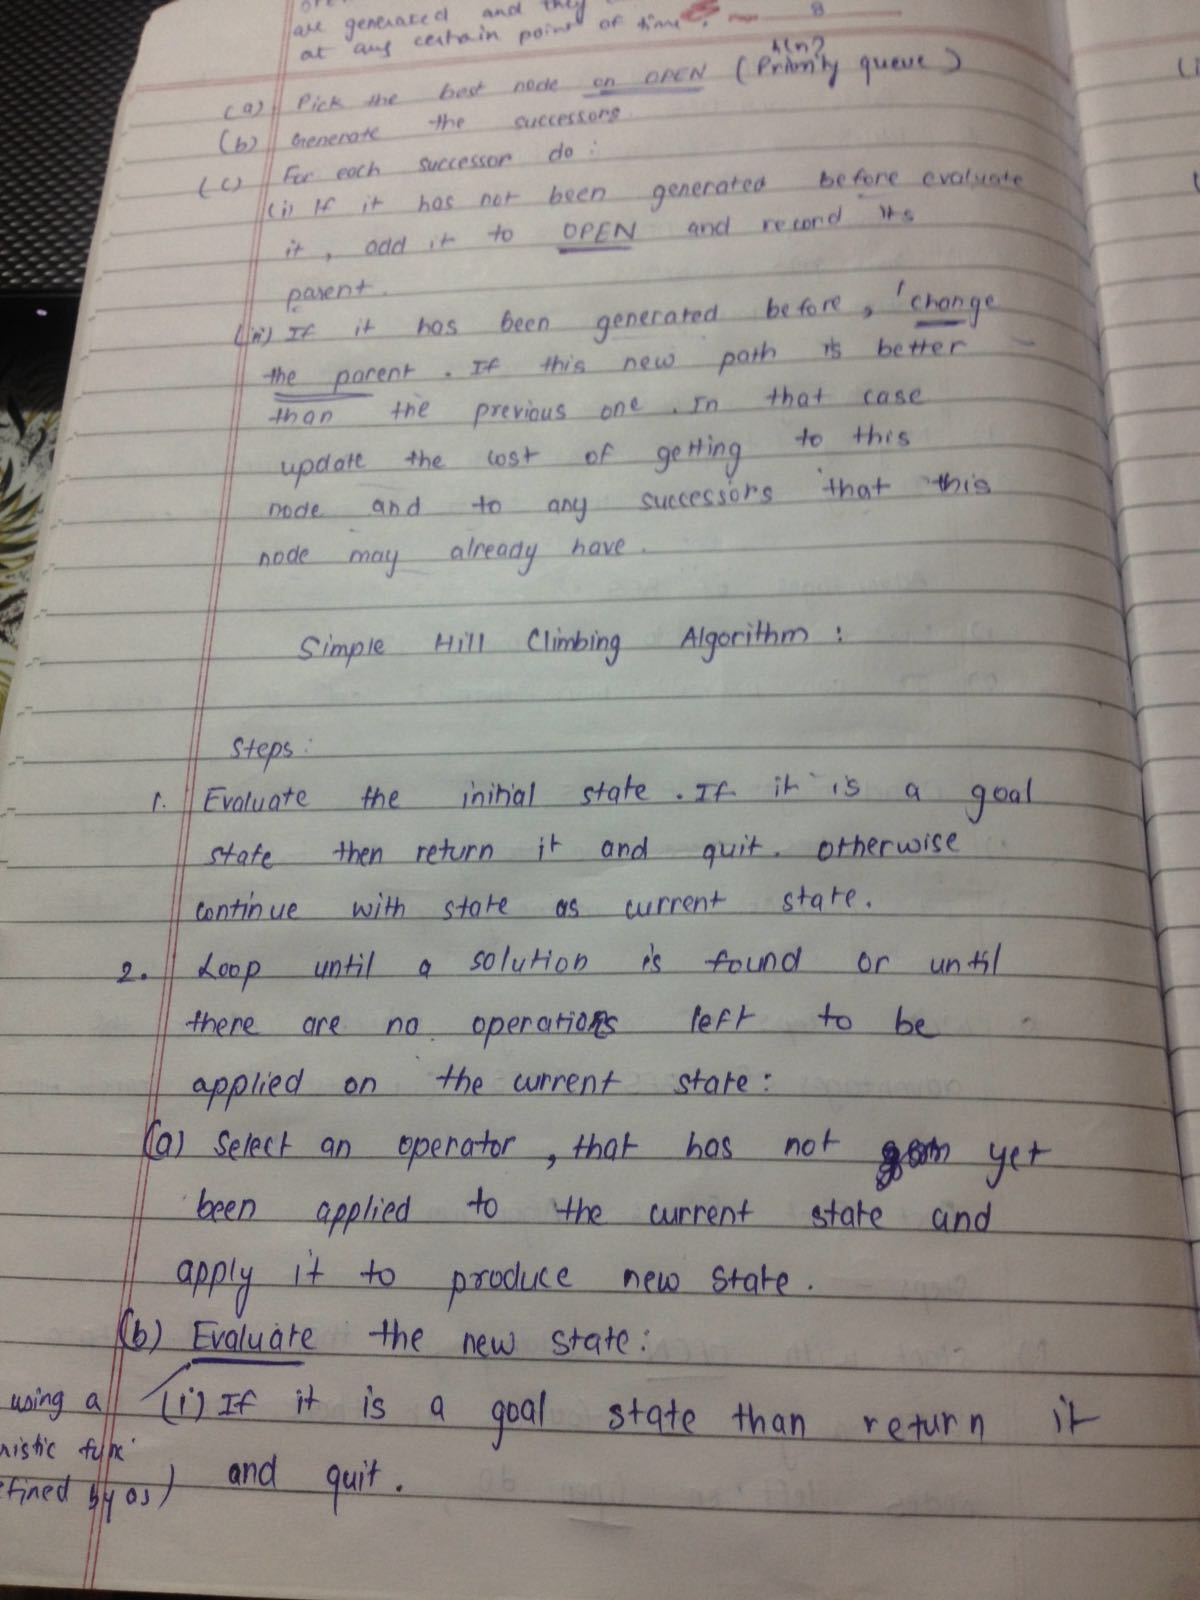 are generated and they
at any certain point of time.
8
h(n)
(a) Pick the best node on OPEN (Priority queue)
(b) Generate the successors
(c) For each successor do:
(i) If it has not been generated before evaluate
it, add it to OPEN and record its
parent.
(ii) If it has been generated before, 'change
the parent. If this new path is better
than the previous one. In that case
update the cost of getting to this
node and to any successors that this
node may already have.
Simple Hill Climbing Algorithm:
Steps:
1. Evaluate the initial state. If it is a goal
state then return it and quit. Otherwise
continue with state as current state.
2. Loop until a solution is found or until
there are no operations left to be
applied on the current state:
(a) Select an operator, that has not yet
been applied to the current state and
apply it to produce new state.
(b) Evaluate the new state:
using a (i) If it is a goal state than return it
ristic func
efined by as) and quit.